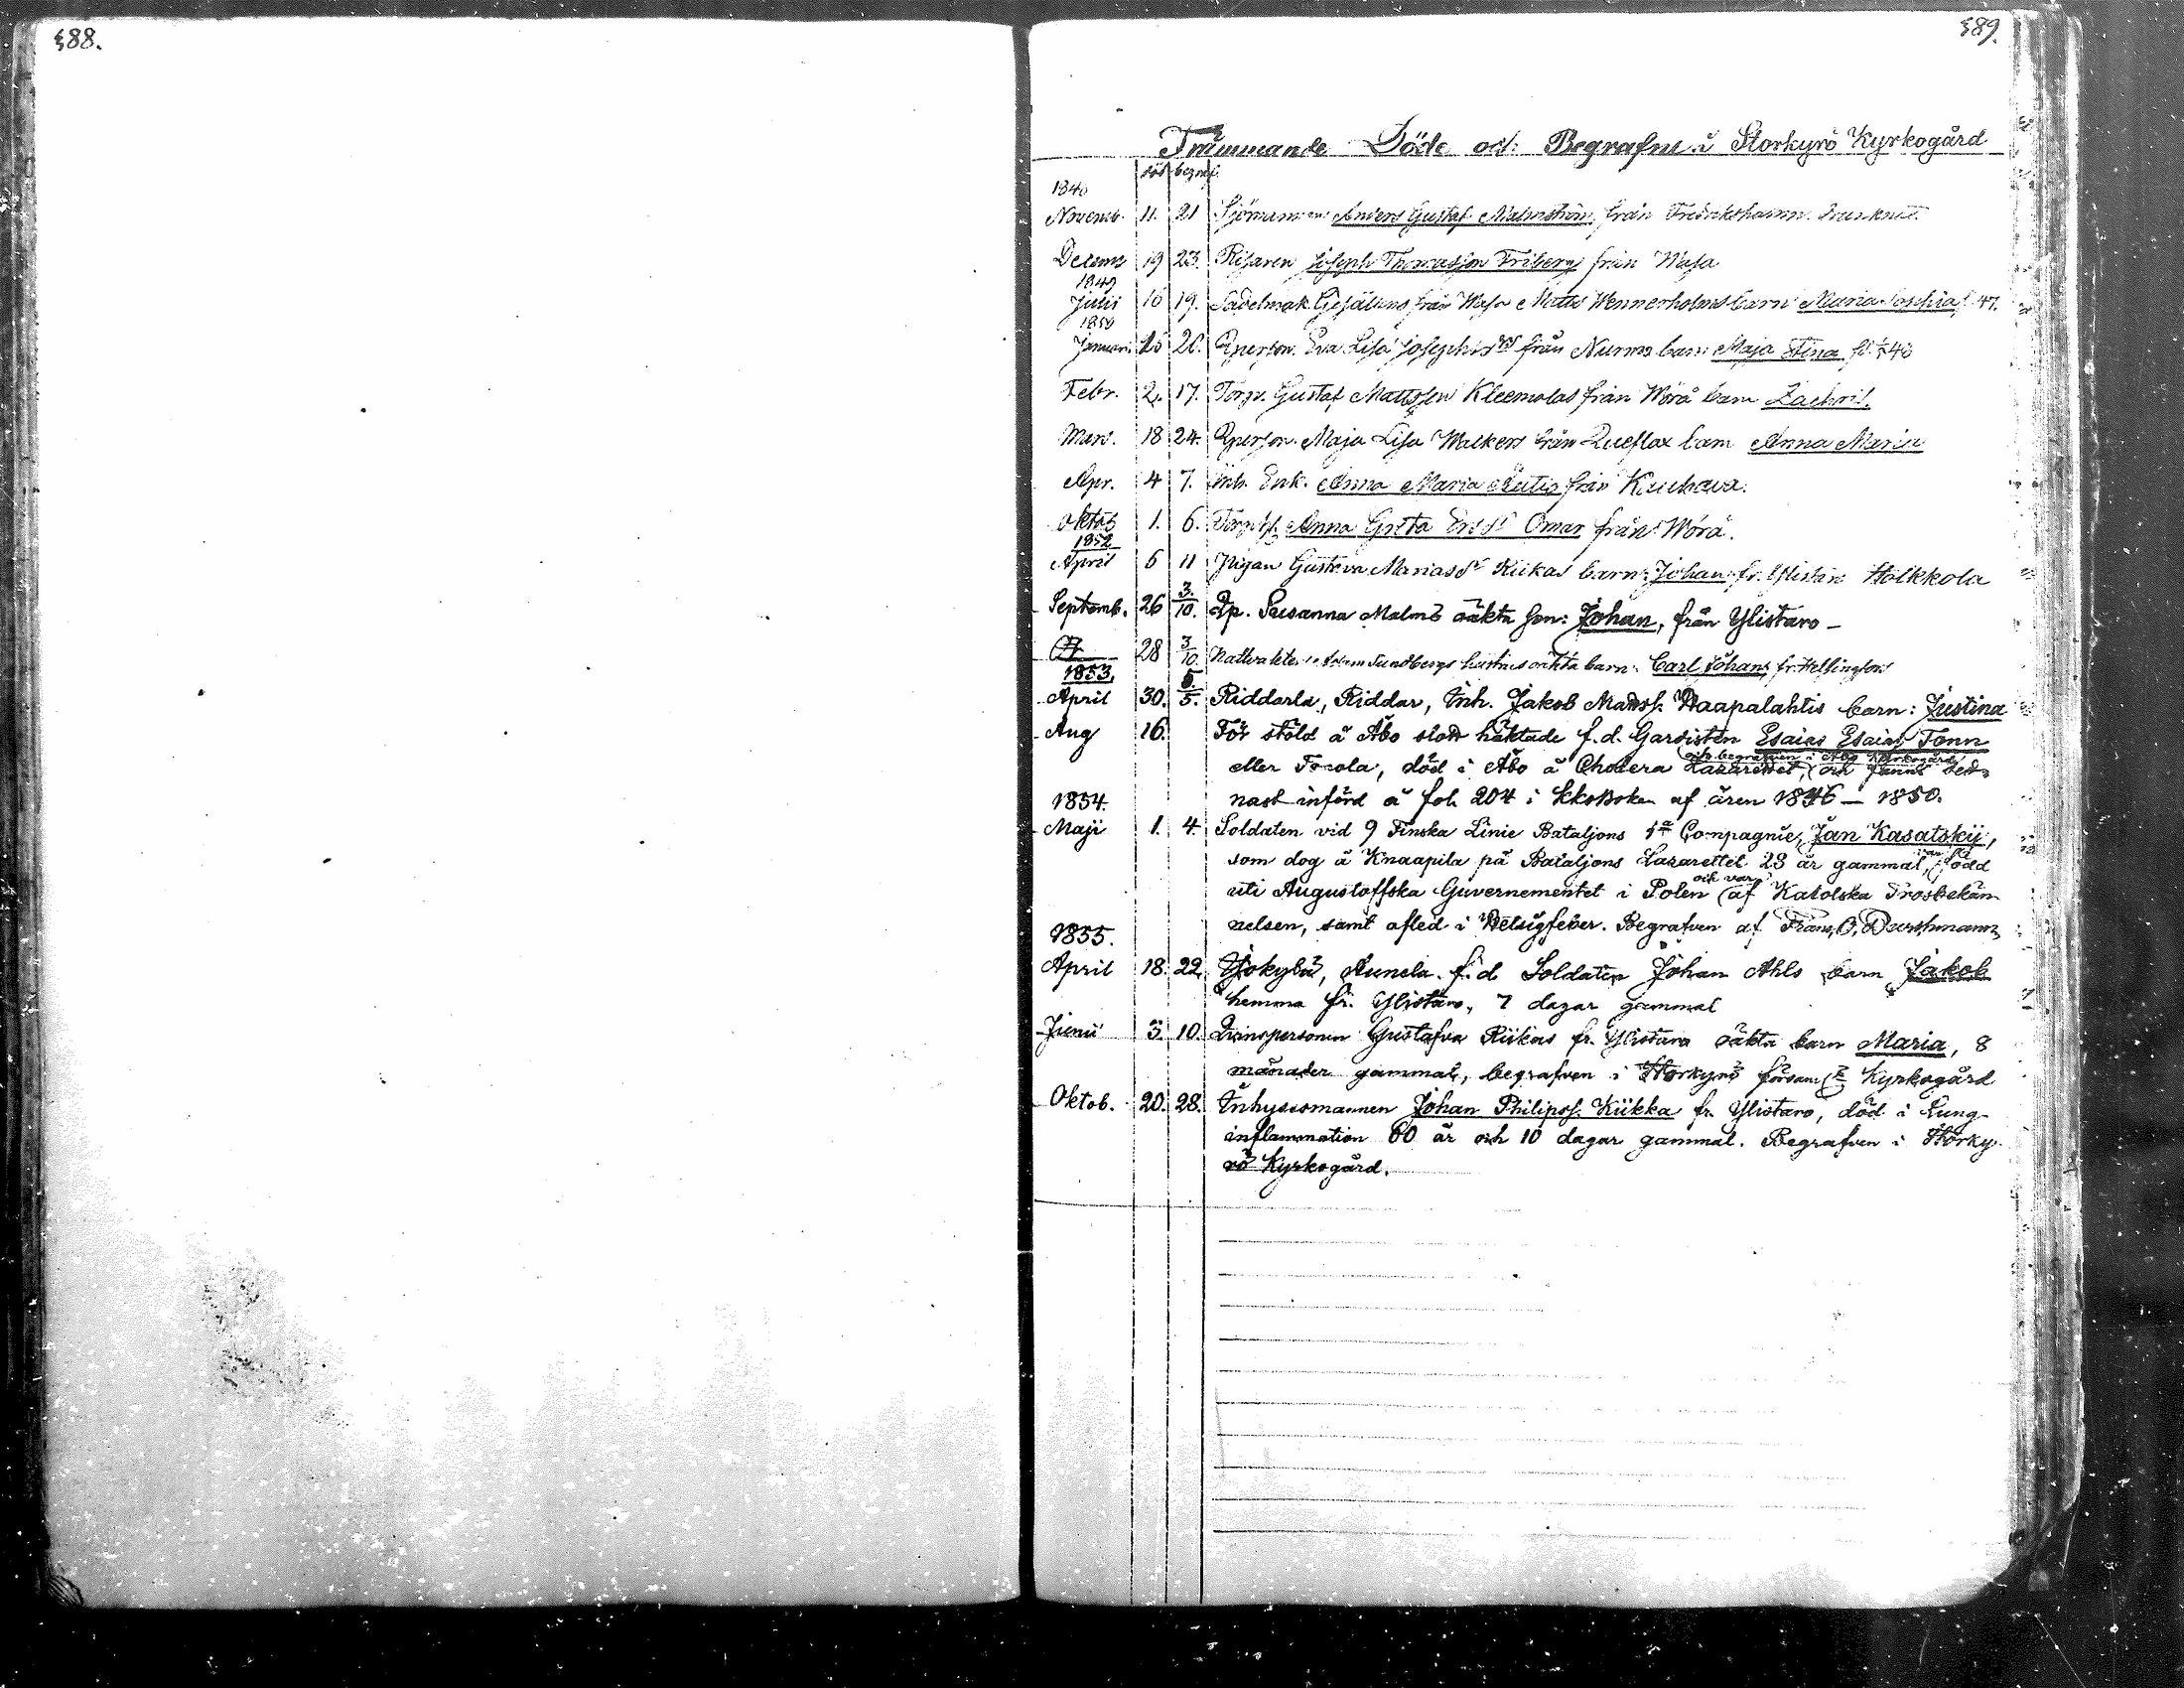 488.
489.
Främmande Döde och Begrafne i Storkyrö Kyrkogård
död begraf.
184
Novemb. 11. 21 Sjömannen Anders Gustaf Malmström från Fredrikshamn. drunknat.
Decem 19 23. Rijaren Joseph Thomasson Friberg från Wasa
1849
Julii 16 19. Sadelmak. Gesällens från Wasa Matts Wennerholms barn Maria Sophia f. 47.
1850
Januari. 15 20. Qperson. Eva Lisa Josephsdr från Nurmo barn Maja Stina fd. 48
Febr. 2. 17. Torp. Gustaf Mattsson Kleemolas från Wörå barn Zachris.
Mars. 18 24. Qperson. Maja Lisa Walkers från Queflax barn Anna Maria
Apr. 4 7. Inh. Enk. Anna Maria från Kauhava.
Oktob 1. 6. Anna Greta Ersdr Omar från Wörå.
1852
April 6 11 Pigan Gustava Mariasdr Kiikas barn: Johan fr. Ylistaro Holkkola
Septemb. 26 3/10. Qp. Susanna Malms oäkta son: Johan, från Ylistaro —
28 3/10. Nattvakten Adam Sundbergs hustrus oäkta barn: Carl Johan, fr. Helsingfors
1853.
April 30. 5/5. Riddarla, Riddar, Inh. Jakob Matsss. Haapalahtis barn: Justina
Aug 16. För stöld å Åbo slott häktade f.d. Gardisten Esaias Esaiass. Tonn
och begrafven i Åbo Kyrkogård
eller Tocola, död i Åbo å Cholera Lazarettet, och finnes sed-
1854. nast införd å fol. 204 i KkoBoken af åren 1846 — 1850.
Maji 1. 4. Soldaten vid 9 Finska Linie Bataljons 1a Compagnie, Jan Kasatskij,
som dog å Knaapila på Bataljons Lazarettet 23 år gammal, var född
och var
uti Augustoffska Guvernementet i Polen af Katolska Trosbekän-
1855. nelsen, samt afled i Nelsigfeber. Begrafven af Frans O. Durchmann
April 18. 22. Yokylä, Aunela. f.d Soldaten Johan Ahls barn Jakob
hemma fr. Ylistaro, 7 dagar gammal
Junii 5. 10. Qvinspersonen Gustafva Riikas fr. Ylistaro oäkta barn Maria, 8
månader gammal, begrafven i Storkyrö församl. Kyrkogård
Oktob. 20. 28. Inhysesmannen Johan Philipss. Kiikka fr. Ylistaro, död i Lung-
inflammation 60 år och 10 dagar gammal. Begrafven i Storky-
rö Kyrkogård.